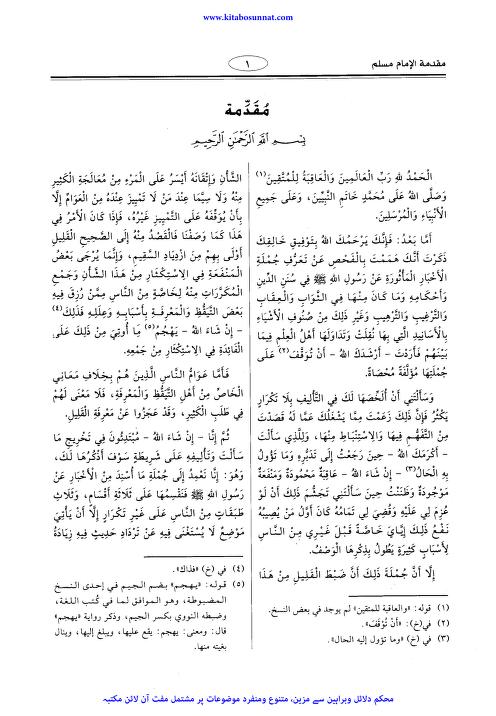 www.kitabosunnat.com
مقدمة الإمام مسلم
١
مُقَدِّمة
بِسْمِ اللهِ الرَّحْمٰنِ الرَّحِيمِ
الْحَمْدُ لِلهِ رَبِّ الْعَالَمِينَ وَالْعَاقِبَةُ لِلْمُتَّقِينَ(١)
وَصَلَّى اللهُ عَلَى مُحَمَّدٍ خَاتَمِ النَّبِيِّينَ، وَعَلَى جَمِيعِ
الْأَنْبِيَاءِ وَالْمُرْسَلِينَ.
أَمَّا بَعْدُ: فَإِنَّكَ يَرْحَمُكَ اللهُ بِتَوْفِيقِ خَالِقِكَ
ذَكَرْتَ أَنَّكَ هَمَمْتَ بِالْفَحْصِ عَنْ تَعَرُّفِ جُمْلَةِ
الْأَخْبَارِ الْمَأْثُورَةِ عَنْ رَسُولِ اللهِ ﷺ فِي سُنَنِ الدِّينِ
وَأَحْكَامِهِ وَمَا كَانَ مِنْهَا فِي الثَّوَابِ وَالْعِقَابِ
وَالتَّرْغِيبِ وَالتَّرْهِيبِ وَغَيْرِ ذٰلِكَ مِنْ صُنُوفِ الْأَشْيَاءِ
بِالْأَسَانِيدِ الَّتِي بِهَا نُقِلَتْ وَتَدَاوَلَهَا أَهْلُ الْعِلْمِ فِيمَا
بَيْنَهُمْ فَأَرَدْتَ - أَرْشَدَكَ اللهُ - أَنْ تُوَقَّفَ(٢) عَلَى
جُمْلَتِهَا مُؤَلَّفَةً مُحْصَاةً.
وَسَأَلْتَنِي أَنْ أُلَخِّصَهَا لَكَ فِي التَّأْلِيفِ بِلَا تَكْرَارٍ
يَكْثُرُ فَإِنَّ ذٰلِكَ زَعَمْتَ مِمَّا يَشْغَلُكَ عَمَّا لَهُ قَصَدْتَ
مِنَ التَّفَهُّمِ فِيهَا وَالِاسْتِنْبَاطِ مِنْهَا، وَلِلَّذِي سَأَلْتَ
- أَكْرَمَكَ اللهُ - حِينَ رَجَعْتُ إِلَى تَدَبُّرِهِ وَمَا تَؤُولُ
بِهِ الْحَالُ(٣) - إِنْ شَاءَ اللهُ - عَاقِبَةٌ مَحْمُودَةٌ وَمَنْفَعَةٌ
مَوْجُودَةٌ وَظَنَنْتُ حِينَ سَأَلْتَنِي تَجَشُّمَ ذٰلِكَ أَنْ لَوْ
عُزِمَ لِي عَلَيْهِ وَقُضِيَ لِي تَمَامُهُ كَانَ أَوَّلُ مَنْ يُصِيبُهُ
نَفْعُ ذٰلِكَ إِيَّايَ خَاصَّةً قَبْلَ غَيْرِي مِنَ النَّاسِ
لِأَسْبَابٍ كَثِيرَةٍ يَطُولُ بِذِكْرِهَا الْوَصْفُ.
إِلَّا أَنَّ جُمْلَةَ ذٰلِكَ أَنَّ ضَبْطَ الْقَلِيلِ مِنْ هٰذَا
(١) قوله: «والعاقبة للمتقين» لم يوجد في بعض النسخ.
(٢) في(خ): «أَنْ تُوْقَفَ».
(٣) في(خ) «وما تؤول إليه الحال».
الشَّأْنِ وَإِتْقَانَهُ أَيْسَرُ عَلَى الْمَرْءِ مِنْ مُعَالَجَةِ الْكَثِيرِ
مِنْهُ وَلَا سِيَّمَا عِنْدَ مَنْ لَا تَمْيِيزَ عِنْدَهُ مِنَ الْعَوَامِّ إِلَّا
بِأَنْ يُوَقِّفَهُ عَلَى التَّمْيِيزِ غَيْرُهُ، فَإِذَا كَانَ الْأَمْرُ فِي
هٰذَا كَمَا وَصَفْنَا فَالْقَصْدُ مِنْهُ إِلَى الصَّحِيحِ الْقَلِيلِ
أَوْلَى بِهِمْ مِنِ ازْدِيَادِ السَّقِيمِ، وَإِنَّمَا يُرْجَى بَعْضُ
الْمَنْفَعَةِ فِي الِاسْتِكْثَارِ مِنْ هٰذَا الشَّأْنِ وَجَمْعِ
الْمُكَرَّرَاتِ مِنْهُ لِخَاصَّةٍ مِنَ النَّاسِ مِمَّنْ رُزِقَ فِيهِ
بَعْضَ التَّيَقُّظِ وَالْمَعْرِفَةِ بِأَسْبَابِهِ وَعِلَلِهِ فَذٰلِكَ(٤)
- إِنْ شَاءَ اللهُ - يَهْجُمُ(٥) بِمَا أُوتِيَ مِنْ ذٰلِكَ عَلَى
الْفَائِدَةِ فِي الِاسْتِكْثَارِ مِنْ جَمْعِهِ.
فَأَمَّا عَوَامُّ النَّاسِ الَّذِينَ هُمْ بِخِلَافِ مَعَانِي
الْخَاصِّ مِنْ أَهْلِ التَّيَقُّظِ وَالْمَعْرِفَةِ، فَلَا مَعْنَى لَهُمْ
فِي طَلَبِ الْكَثِيرِ، وَقَدْ عَجَزُوا عَنْ مَعْرِفَةِ الْقَلِيلِ.
ثُمَّ إِنَّا - إِنْ شَاءَ اللهُ - مُبْتَدِئُونَ فِي تَخْرِيجِ مَا
سَأَلْتَ وَتَأْلِيفِهِ عَلَى شَرِيطَةٍ سَوْفَ أَذْكُرُهَا لَكَ،
وَهُوَ: إِنَّا نَعْمِدُ إِلَى جُمْلَةِ مَا أُسْنِدَ مِنَ الْأَخْبَارِ عَنْ
رَسُولِ اللهِ ﷺ فَنَقْسِمُهَا عَلَى ثَلَاثَةِ أَقْسَامٍ، وَثَلَاثِ
طَبَقَاتٍ مِنَ النَّاسِ عَلَى غَيْرِ تَكْرَارٍ إِلَّا أَنْ يَأْتِيَ
مَوْضِعٌ لَا يُسْتَغْنَى فِيهِ عَنْ تَرْدَادِ حَدِيثٍ فِيهِ زِيَادَةُ
(٤) في (خ) «فذاك».
(٥) قوله: «يهجم» بضم الجيم في إحدى النسخ
المضبوطة، وهو الموافق لما في كُتب اللغة،
وضبطه النووي بكسر الجيم، وذكر رواية «يهجم»
قال: ومعنى: يهجم: يقع عليها، ويبلغ إليها، وينال
بغيته منها.
محکم دلائل وبراہین سے مزین، متنوع ومنفرد موضوعات پر مشتمل مفت آن لائن مکتبہ